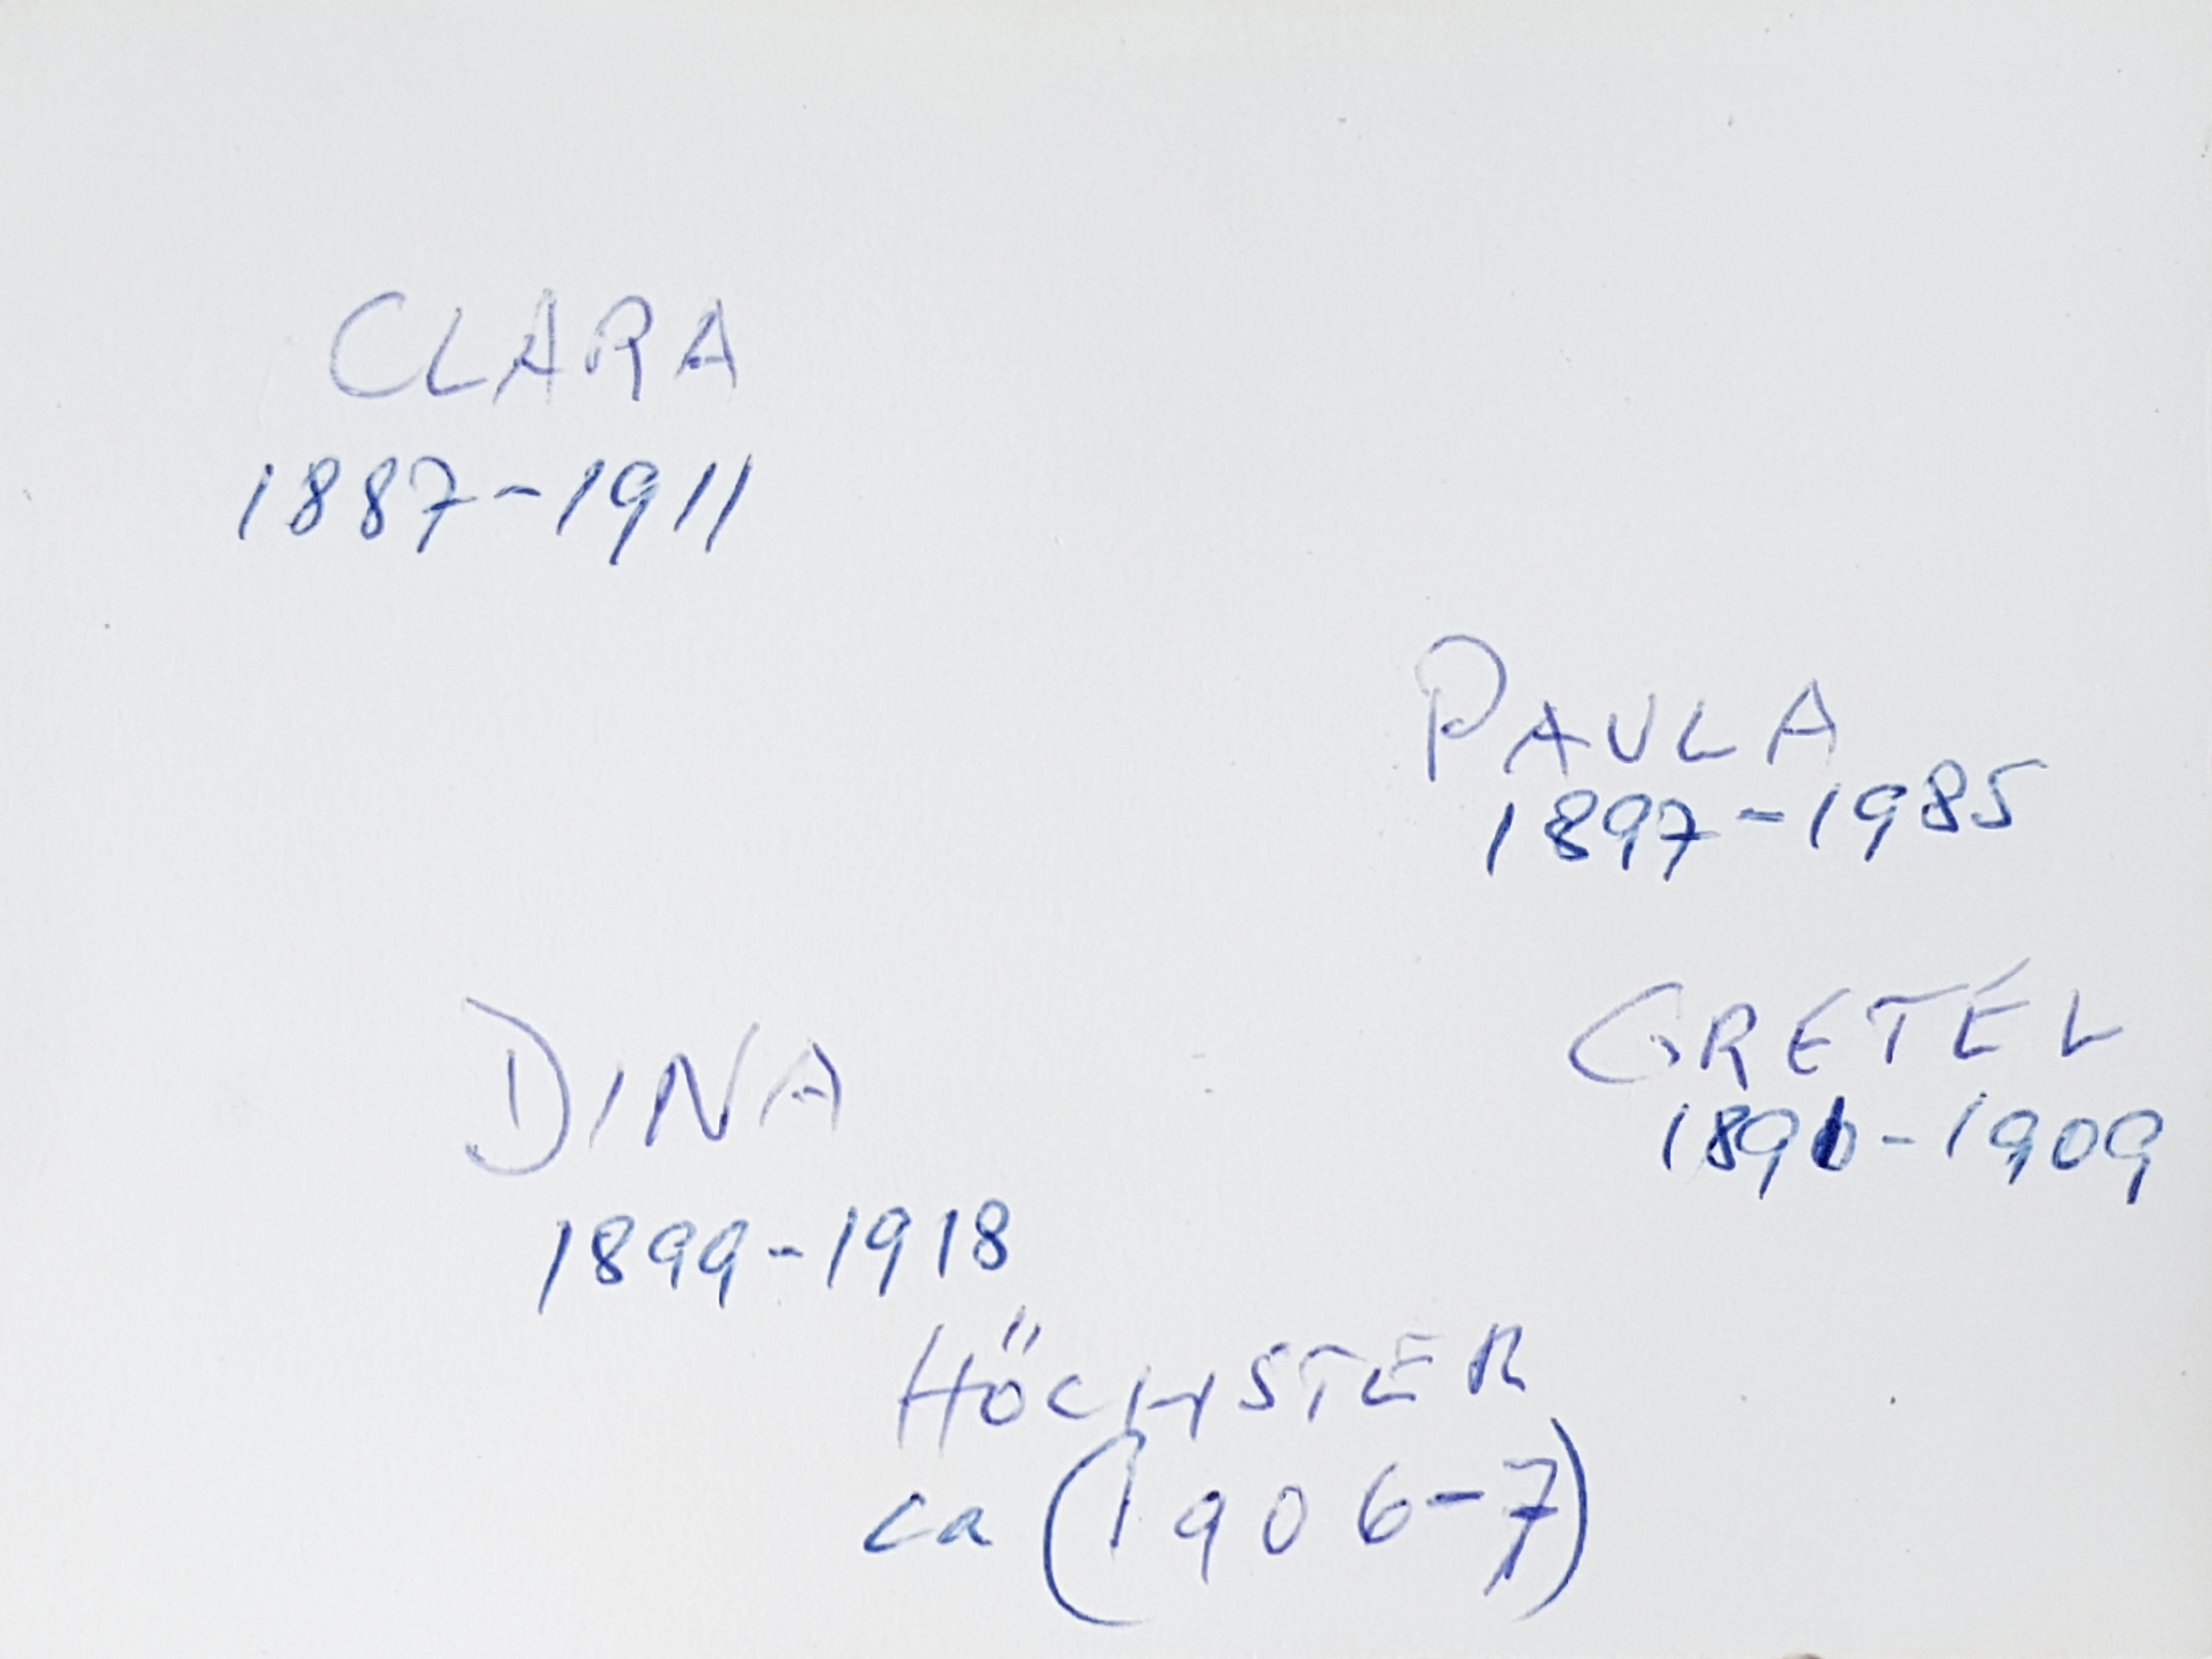 CLARA
1887-1911
PAULA
1897-1985
GRETEL
1890-1909
DINA
1899-1918
HÖCHSTER
ca (1906-7)